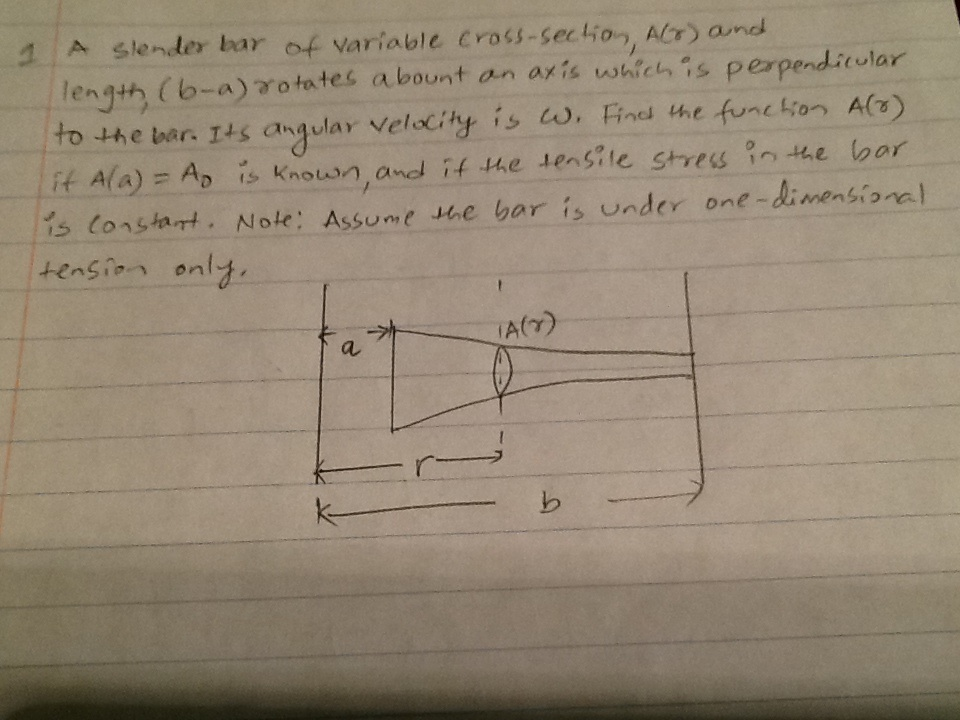 1 A slender bar of variable cross-section, A(r) and
length, (b-a) rotates abount an axis which is perpendicular
to the bar. Its angular velocity is ω. Find the function A(r)
if A(a) = A₀ is known, and if the tensile stress in the bar
is constant. Note: Assume the bar is under one-dimensional
tension only.
A(r)
a
r
b